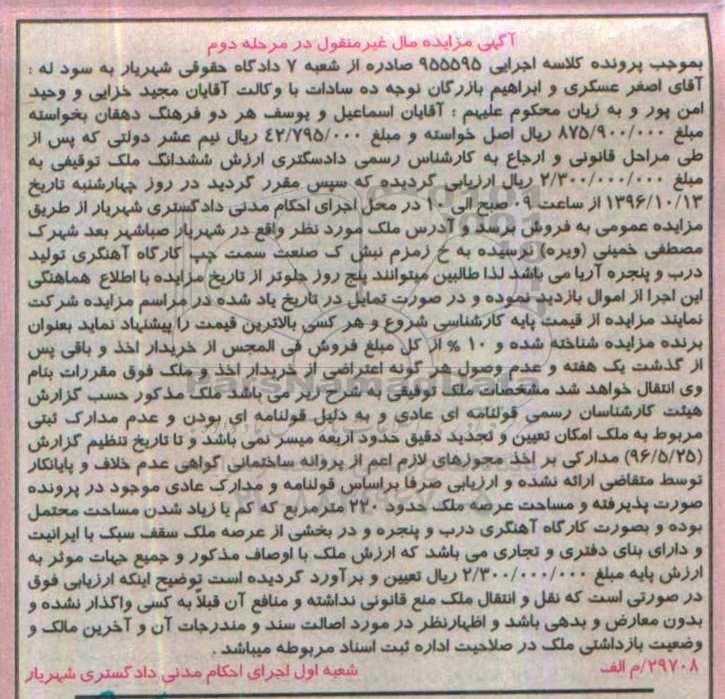 آگهی مزایده مال غیرمنقول در مرحله دوم
بموجب پرونده کلاسه اجرایی ۹۵۵۵۹۵ صادره از شعبه ۷ دادگاه حقوقی شهریار به سود له :
آقای اصغر عسکری و ابراهیم بازرگان نوجه ده سادات با وکالت آقایان مجید خزایی و وحید
امن پور و به زیان محکوم علیهم : آقایان اسماعیل و یوسف هر دو فرهنگ دهقان بخواسته
مبلغ ۸۷۵/۹۰۰/۰۰۰ ریال اصل خواسته و مبلغ ۴۲/۷۹۵/۰۰۰ ریال نیم عشر دولتی که پس از
طی مراحل قانونی و ارجاع به کارشناس رسمی دادسگتری ارزش ششدانگ ملک توقیفی به
مبلغ ۲/۳۰۰/۰۰۰/۰۰۰ ریال ارزیابی گردیده که سپس مقرر گردید در روز چهارشنبه تاریخ
۱۳۹۶/۱۰/۱۳ از ساعت ۰۹ صبح الی ۱۰ در محل اجرای احکام مدنی دادگستری شهریار از طریق
مزایده عمومی به فروش برسد و آدرس ملک مورد نظر واقع در شهریار صباشهر بعد شهرک
مصطفی خمینی (ویره) نرسیده به خ زمزم نبش ک صنعت سمت چپ کارگاه آهنگری تولید
درب و پنجره آریا می باشد لذا طالبین میتوانند پنج روز جلوتر از تاریخ مزایده با اطلاع هماهنگی
این اجرا از اموال بازدید نموده و در صورت تمایل در تاریخ یاد شده در مراسم مزایده شرکت
نمایند مزایده از قیمت پایه کارشناسی شروع و هر کسی بالاترین قیمت را پیشنهاد نماید بعنوان
برنده مزایده شناخته شده و ۱۰ % از کل مبلغ فروش فی المجس از خریدار اخذ و باقی پس
از گذشت یک هفته و عدم وصول هر گونه اعتراضی از خریدار اخذ و ملک فوق مقررات بنام
وی انتقال خواهد شد مشخصات ملک توقیفی به شرح زیر می باشد ملک مذکور حسب گزارش
هیئت کارشناسان رسمی قولنامه ای عادی و به دلیل قولنامه ای بودن و عدم مدارک ثبتی
مربوط به ملک امکان تعیین و تحدید دقیق حدود اربعه میسر نمی باشد و تا تاریخ تنظیم گزارش
(۹۶/۵/۲۵) مدارکی بر اخذ مجوزهای لازم اعم از پروانه ساختمانی گواهی عدم خلاف و پایانکار
توسط متقاضی ارائه نشده و ارزیابی صرفا براساس قولنامه و مدارک عادی موجود در پرونده
صورت پذیرفته و مساحت عرصه ملک حدود ۲۲۰ مترمربع که کم یا زیاد شدن مساحت محتمل
بوده و بصورت کارگاه آهنگری درب و پنجره و در بخشی از عرصه ملک سقف سبک با ایرانیت
و دارای بنای دفتری و تجاری می باشد که ارزش ملک با اوصاف مذکور و جمیع جهات موثر به
ارزش پایه مبلغ ۲/۳۰۰/۰۰۰/۰۰۰ ریال تعیین و برآورد گردیده است توضیح اینکه ارزیابی فوق
در صورتی است که نقل و انتقال ملک منع قانونی نداشته و منافع آن قبلاً به کسی واگذار نشده و
بدون معارض و بدهی باشد و اظهارنظر در مورد اصالت سند و مندرجات آن و آخرین مالک و
وضعیت بازداشتی ملک در صلاحیت اداره ثبت اسناد مربوطه میباشد .
۲۹۷۰۸/م الف شعبه اول اجرای احکام مدنی دادگستری شهریار
ParsNamadData